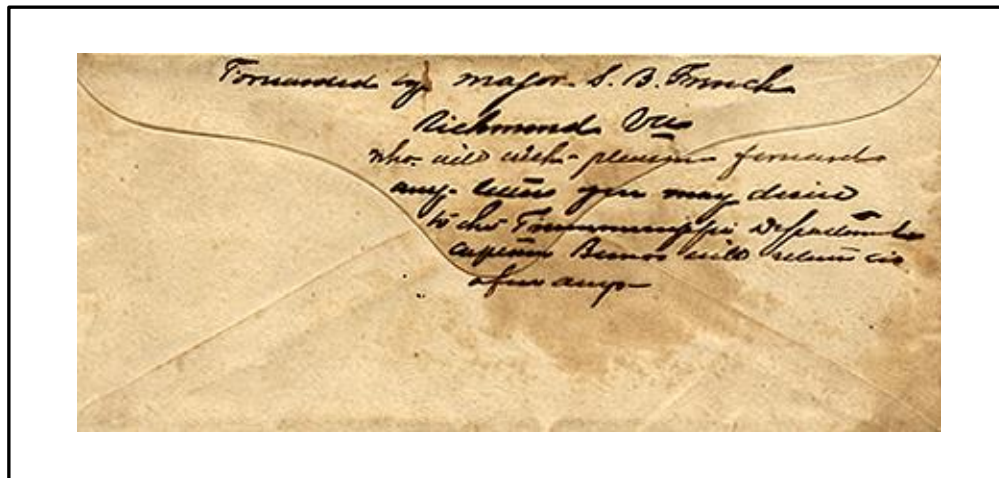 Forwarded by major S. B. French
Richmond Va
who will with pleasure forward
any letters you may desire
to the Transmississippi Department
captain Burnes will return in
a few days